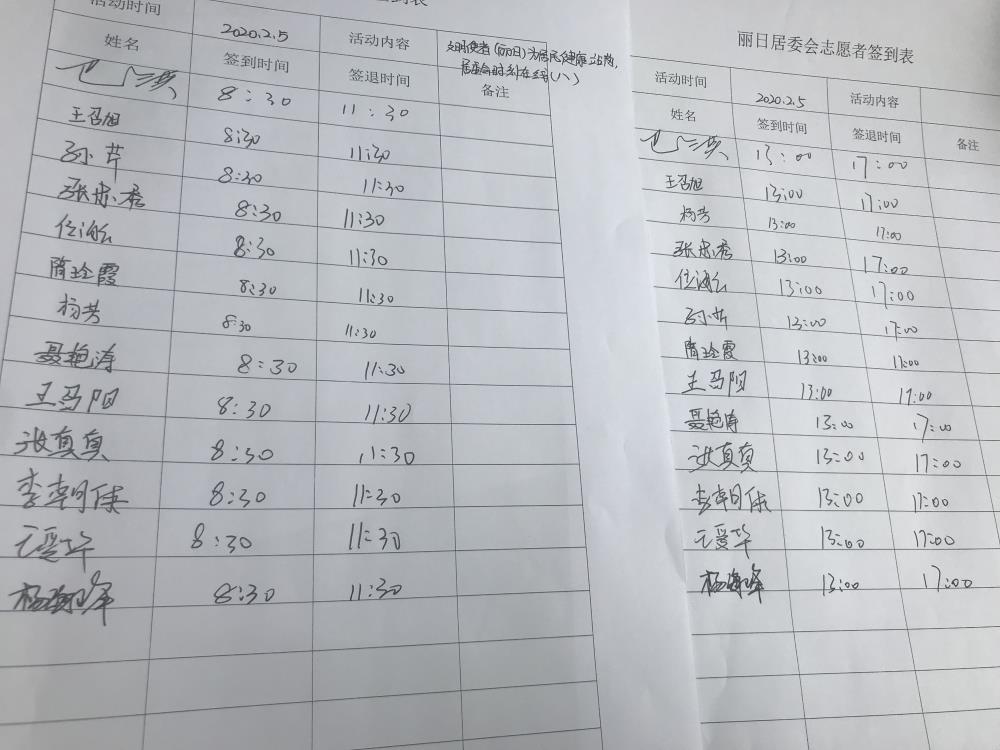 到表
活动时间 2020.2.5 活动内容
姓名 签到时间 签退时间 备注
8:30 11:30
王召旭 8:30 11:30
孙芹 8:30 11:30
张忠秀 8:30 11:30
8:30 11:30
隋玲霞 8:30 11:30
杨芳 8:30 11:30
聂艳涛 8:30 11:30
王马阳 8:30 11:30
张真真 8:30 11:30
李朝保 8:30 11:30
亓爱华 8:30 11:30
杨海峰 8:30 11:30
丽日居委会志愿者签到表
活动时间 2020.2.5 活动内容
姓名 签到时间 签退时间 备注
13:00 17:00
王召旭 13:00 17:00
杨芳 13:00 17:00
张忠秀 13:00 17:00
13:00 17:00
孙芹 13:00 17:00
隋玲霞 13:00 17:00
王马阳 13:00 17:00
聂艳涛 13:00 17:00
张真真 13:00 17:00
李朝保 13:00 17:00
亓爱华 13:00 17:00
杨海峰 13:00 17:00